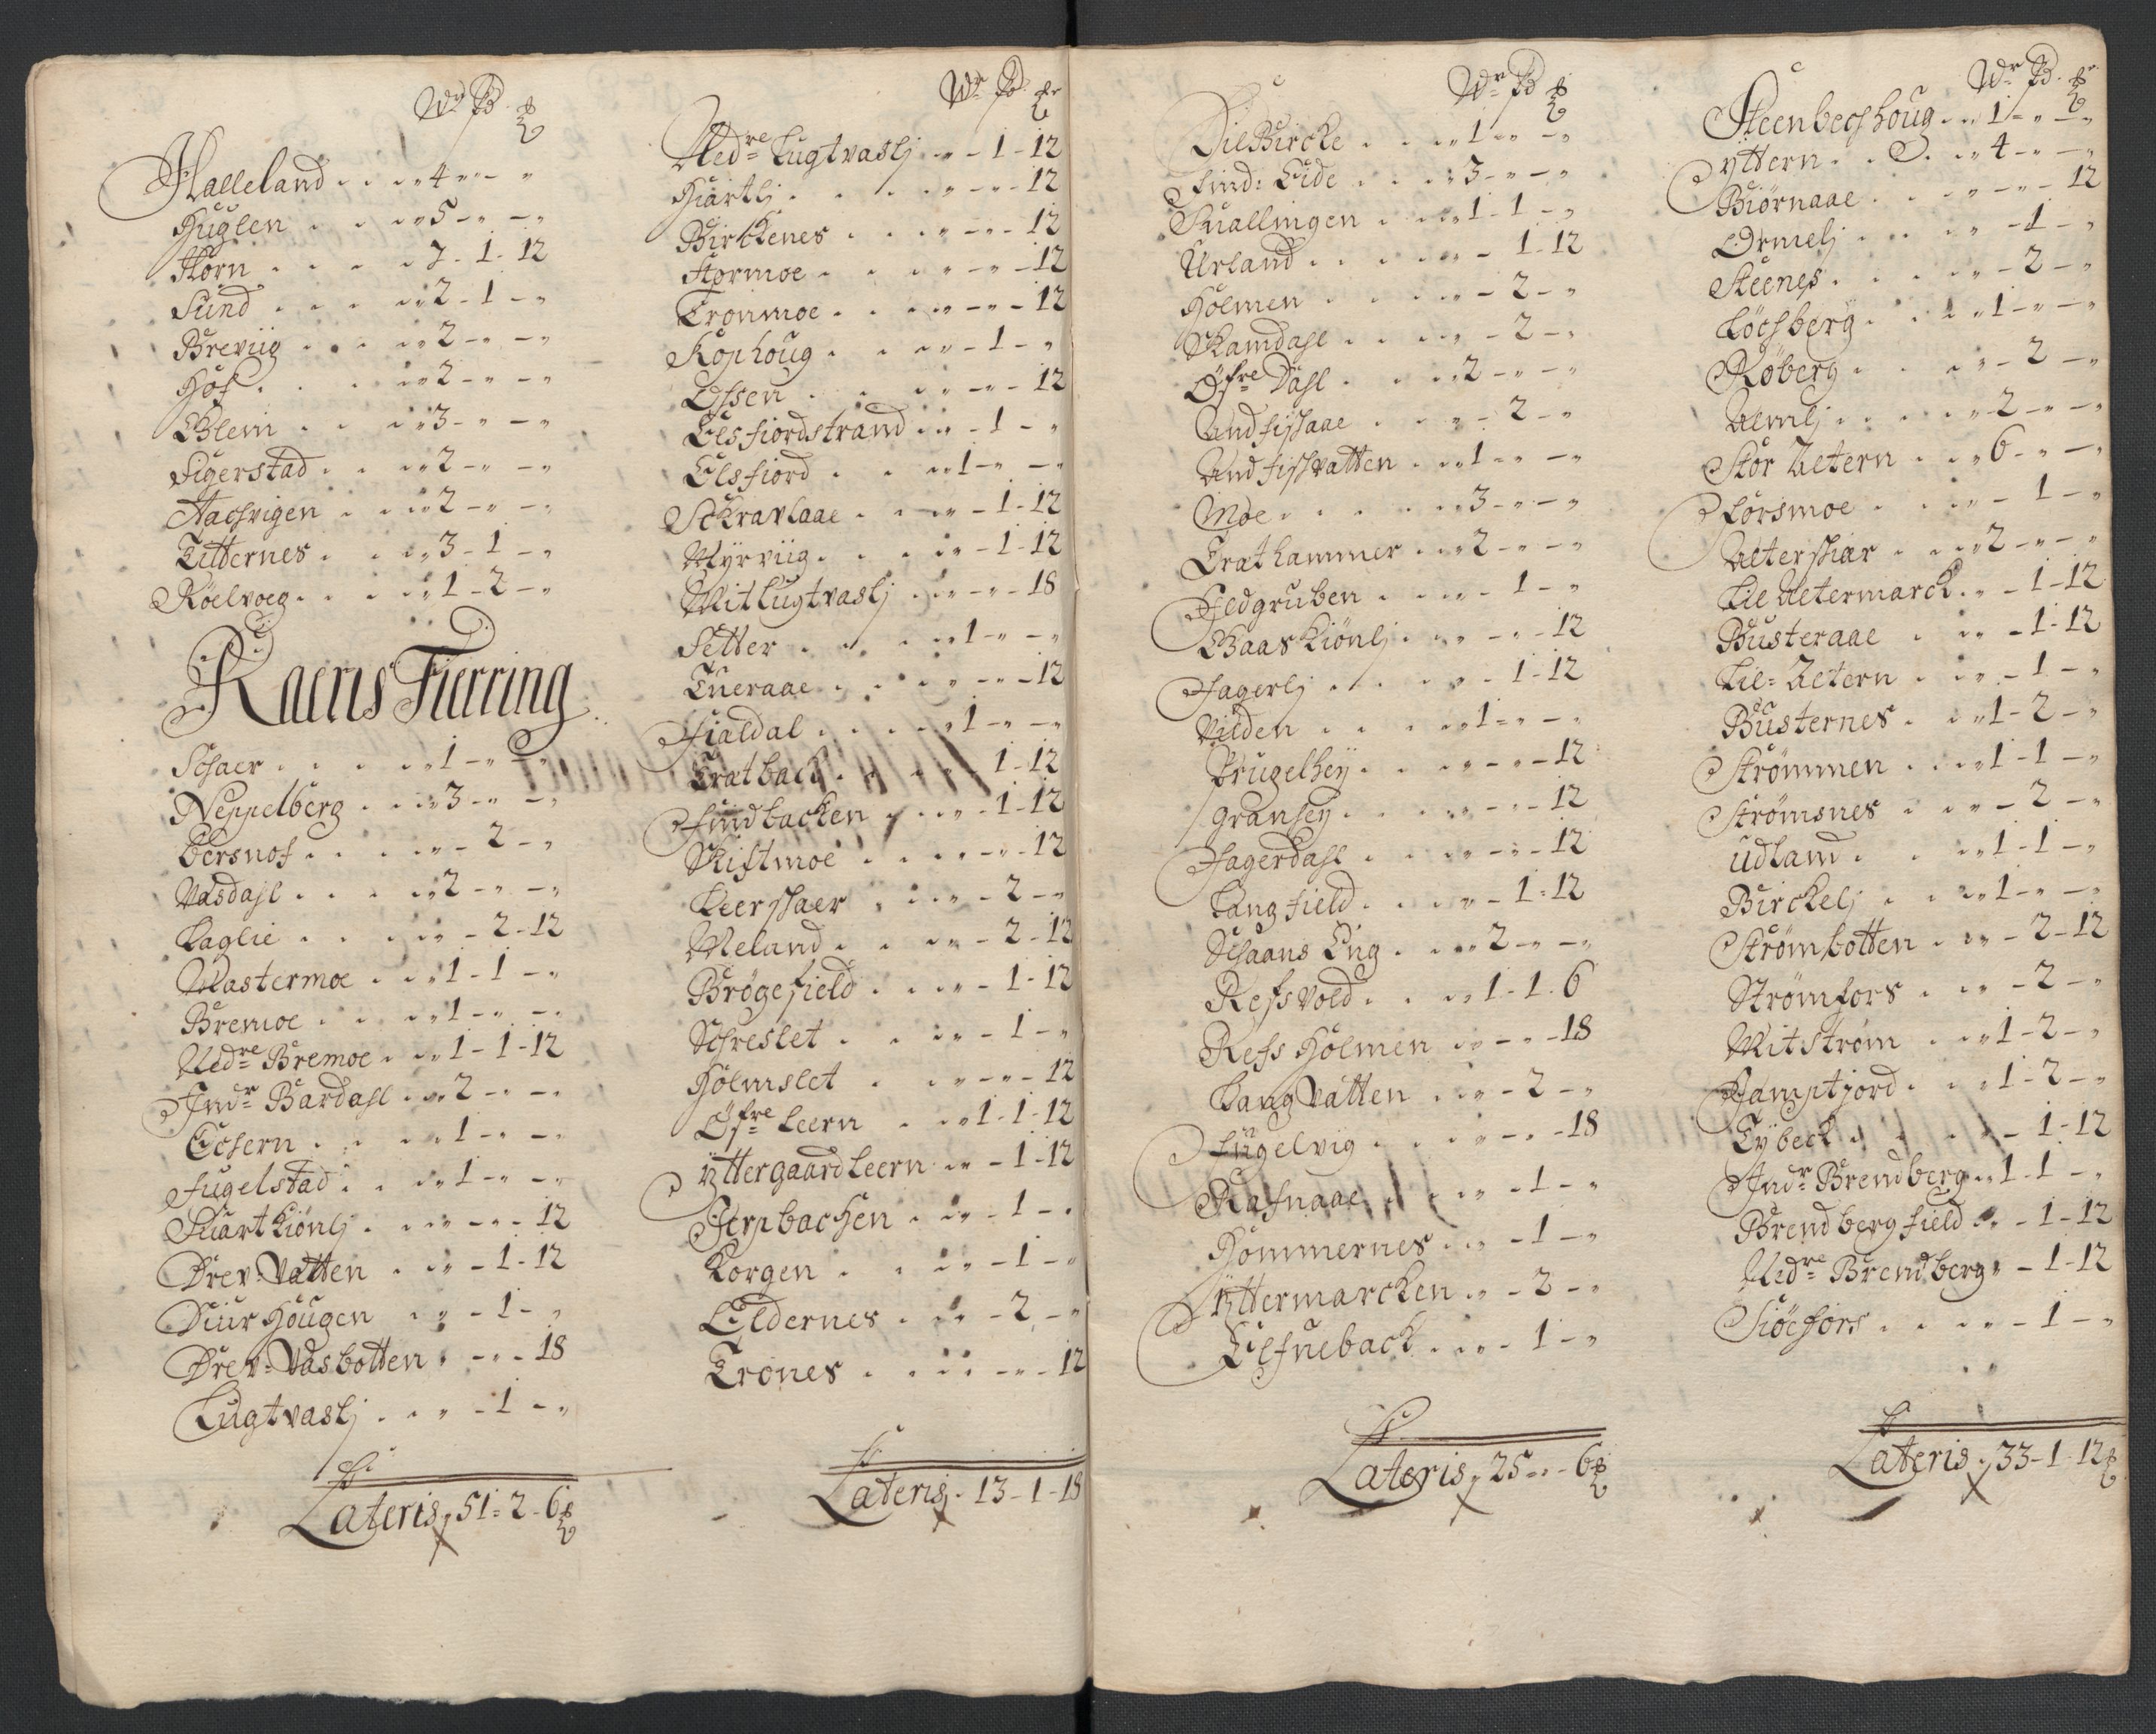 Wr P ℔
Halleland . . . „ 4 - „ - „
Huglen . . . „ 5 - „ - „
Horn . . . . „ 7 - 1 - 12
Sund . . . „ 2 - 1 - „
Breviig . . . „ 2 - „ - „
Hof . . . . „ 2 - „ - „
Blein . . . „ 3 - „ - „
Sigerstad . . „ 2 - „ - „
Aachvigen . . „ 2 - „ - „
Titternes . . . „ 3 - 1 - „
Röelvoeg . . . „ 1 - 2 - „
Raens Fierring
Schaer . . . . „ 1 - „ - „
Neppelberg . . „ 3 - „ - „
Bersnof . . . . „ - 2 - „
Vasdahl . . . „ 2 - „ - „
Laglie . . . . „ - 2 - 12
Mastermoe . . „ 1 - 1 - „
Bremoe . . . „ 1 - „ - „
Nedre Bremoe . . „ 1 - 1 - 12
Indr Bardahl . „ 2 - „ - „
Echern . . . „ 1 - „ - „
Fugelstad . . . „ 1 - „ - „
Suartkiönlj . . „ - „ - 12
Drev-Vatten . . „ - 1 - 12
Diurhougen . . „ - 1 - „
Drev-Vasbotten . - „ - 18
Lugtvaslj . . . „ - 1 - „
Lateris, 51 - 2 - 6 ℔
Wr P ℔r
Nedre Lugtvaslj „ - 1 - 12
Hiartlj . . . . „ - „ - 12
Birckenes . . . „ - „ - 12
Stormoe . . . „ - „ - 12
Tronmoe . . . „ - „ - 12
Kophoug . . . „ - 1 - „
Ossen . . . . „ - „ - 12
Elsfiordstrand . „ - 1 - „
Elsfiord . . . „ 1 - „ - „
Sckravlaae . . . „ - 1 - 12
Myrviig . . . . „ - 1 - 12
Mitlugtvaslj . . „ - „ - 18
Setter . . . . „ 1 - „ - „
Tueraae . . . . „ - „ - 12
Fialdal . . . . „ 1 - „ - „
Tratback . . . „ 1 - 12
Findbacken . . „ - 1 - 12
Skiftmoe . . . . „ - „ - 12
Leerskaer . . . „ - 2 - „
Meland . . . „ - 2 - 12
Brögefield . . . „ - 1 - 12
Schreslet . . . „ - 1 - „
Holmslet . . . „ - „ - 12
Øfre Leern . . „ 1 - 1 - 12
Yttergaard Leern „ - 1 - 12
Jerpbachen . . „ - 1 - „
Korgen . . . „ - 1 - „
Eldernes . . . „ - 2 - „
Trones . . . . „ - „ - 12
Lateris . 13 - 1 - 18
Wr P ℔
Dilbircke . . . „ 1 - „ - „
Find: Eide . . „ 3 - „ - „
Suallingen . . . „ 1 - 1 - „
Urland . . . . „ - 1 - 12
Holmen . . . . „ - 2 - „
Ramdahl . . . „ - 2 - „
Øfre Dahl . . . „ 2 - „ - „
Andfiskaae . . . „ - 2 - „
Andfiskvatten . „ 1 - „ - „
Moe . . . . . „ 3 - „ - „
Trathammer . . „ 2 - „ - „
Jeldgruben . . . „ - 1 - „
Baaskiönlj . . „ - „ - 12
Fagerlj . . . . „ - 1 - 12
Vilden . . . . „ 1 - „ - „
Prugelhey . . . „ - „ - 12
Granhey . . . . „ - „ - 12
Fagerdahl . . . „ - „ - 12
Langfield . . . „ - 1 - 12
Schaans Eng . . „ 2 - „ - „
Refsvold . . . „ 1 - 1 - 6
Refs Holmen . „ - „ - 18
Lang Vatten . . „ - 2 - „
Fugelvig . . . . „ - „ - 18
Rafnaae . . . „ - 1 - „
Hommernes . . „ - 1 - „
Yttermarcken . „ - 2 - „
Elfneback . . „ - 1 - „
Lateris, 25 - „ - 6 ℔
Wr P. ℔r
Steenbechhoug . „ 1 - „ - „
Yttern . . . . „ 4 - „ - „
Biörnaae . . . „ - „ - 12
Ormelj . . . „ - 1 - „
Steenes . . . . „ - 2 - „
Löchberg . . . „ 1 - „ - „
Röberg . . . „ - 2 - „
Almlj . . . . „ 2 - „ - „
Stor Altern . . „ 6 - „ - „
Forsmoe . . . „ - 1 - „
Alterskiær . . „ 2 - „ - „
Lie Altermarck . „ - 1 - 12
Busteraae . . „ - 1 - 12
Lie-Altern . . „ - 1 - „
Busternes . . „ 1 - 2 - „
Strømmen . . „ 1 - 1 - „
Strømsnes . . „ - 2 - „
Udland . . . „ 1 - 1 - „
Birckelj . . . „ 1 - „ - „
Strømbotten . „ - 2 - 12
Strømfors . . „ - 2 - „
Mitstrøm . . „ 1 - 2 - „
Jamptjord . . „ 1 - 2 - „
Tybeck . . . . „ - 1 - 12
Indr Brendberg „ 1 - 1 - „
Brendbergfield „ - 1 - 12
Nedre Brendberg „ - 1 - 12
Siöefors . . . „ - 1 - „
Lateris, 33 - 1 - 12 ℔